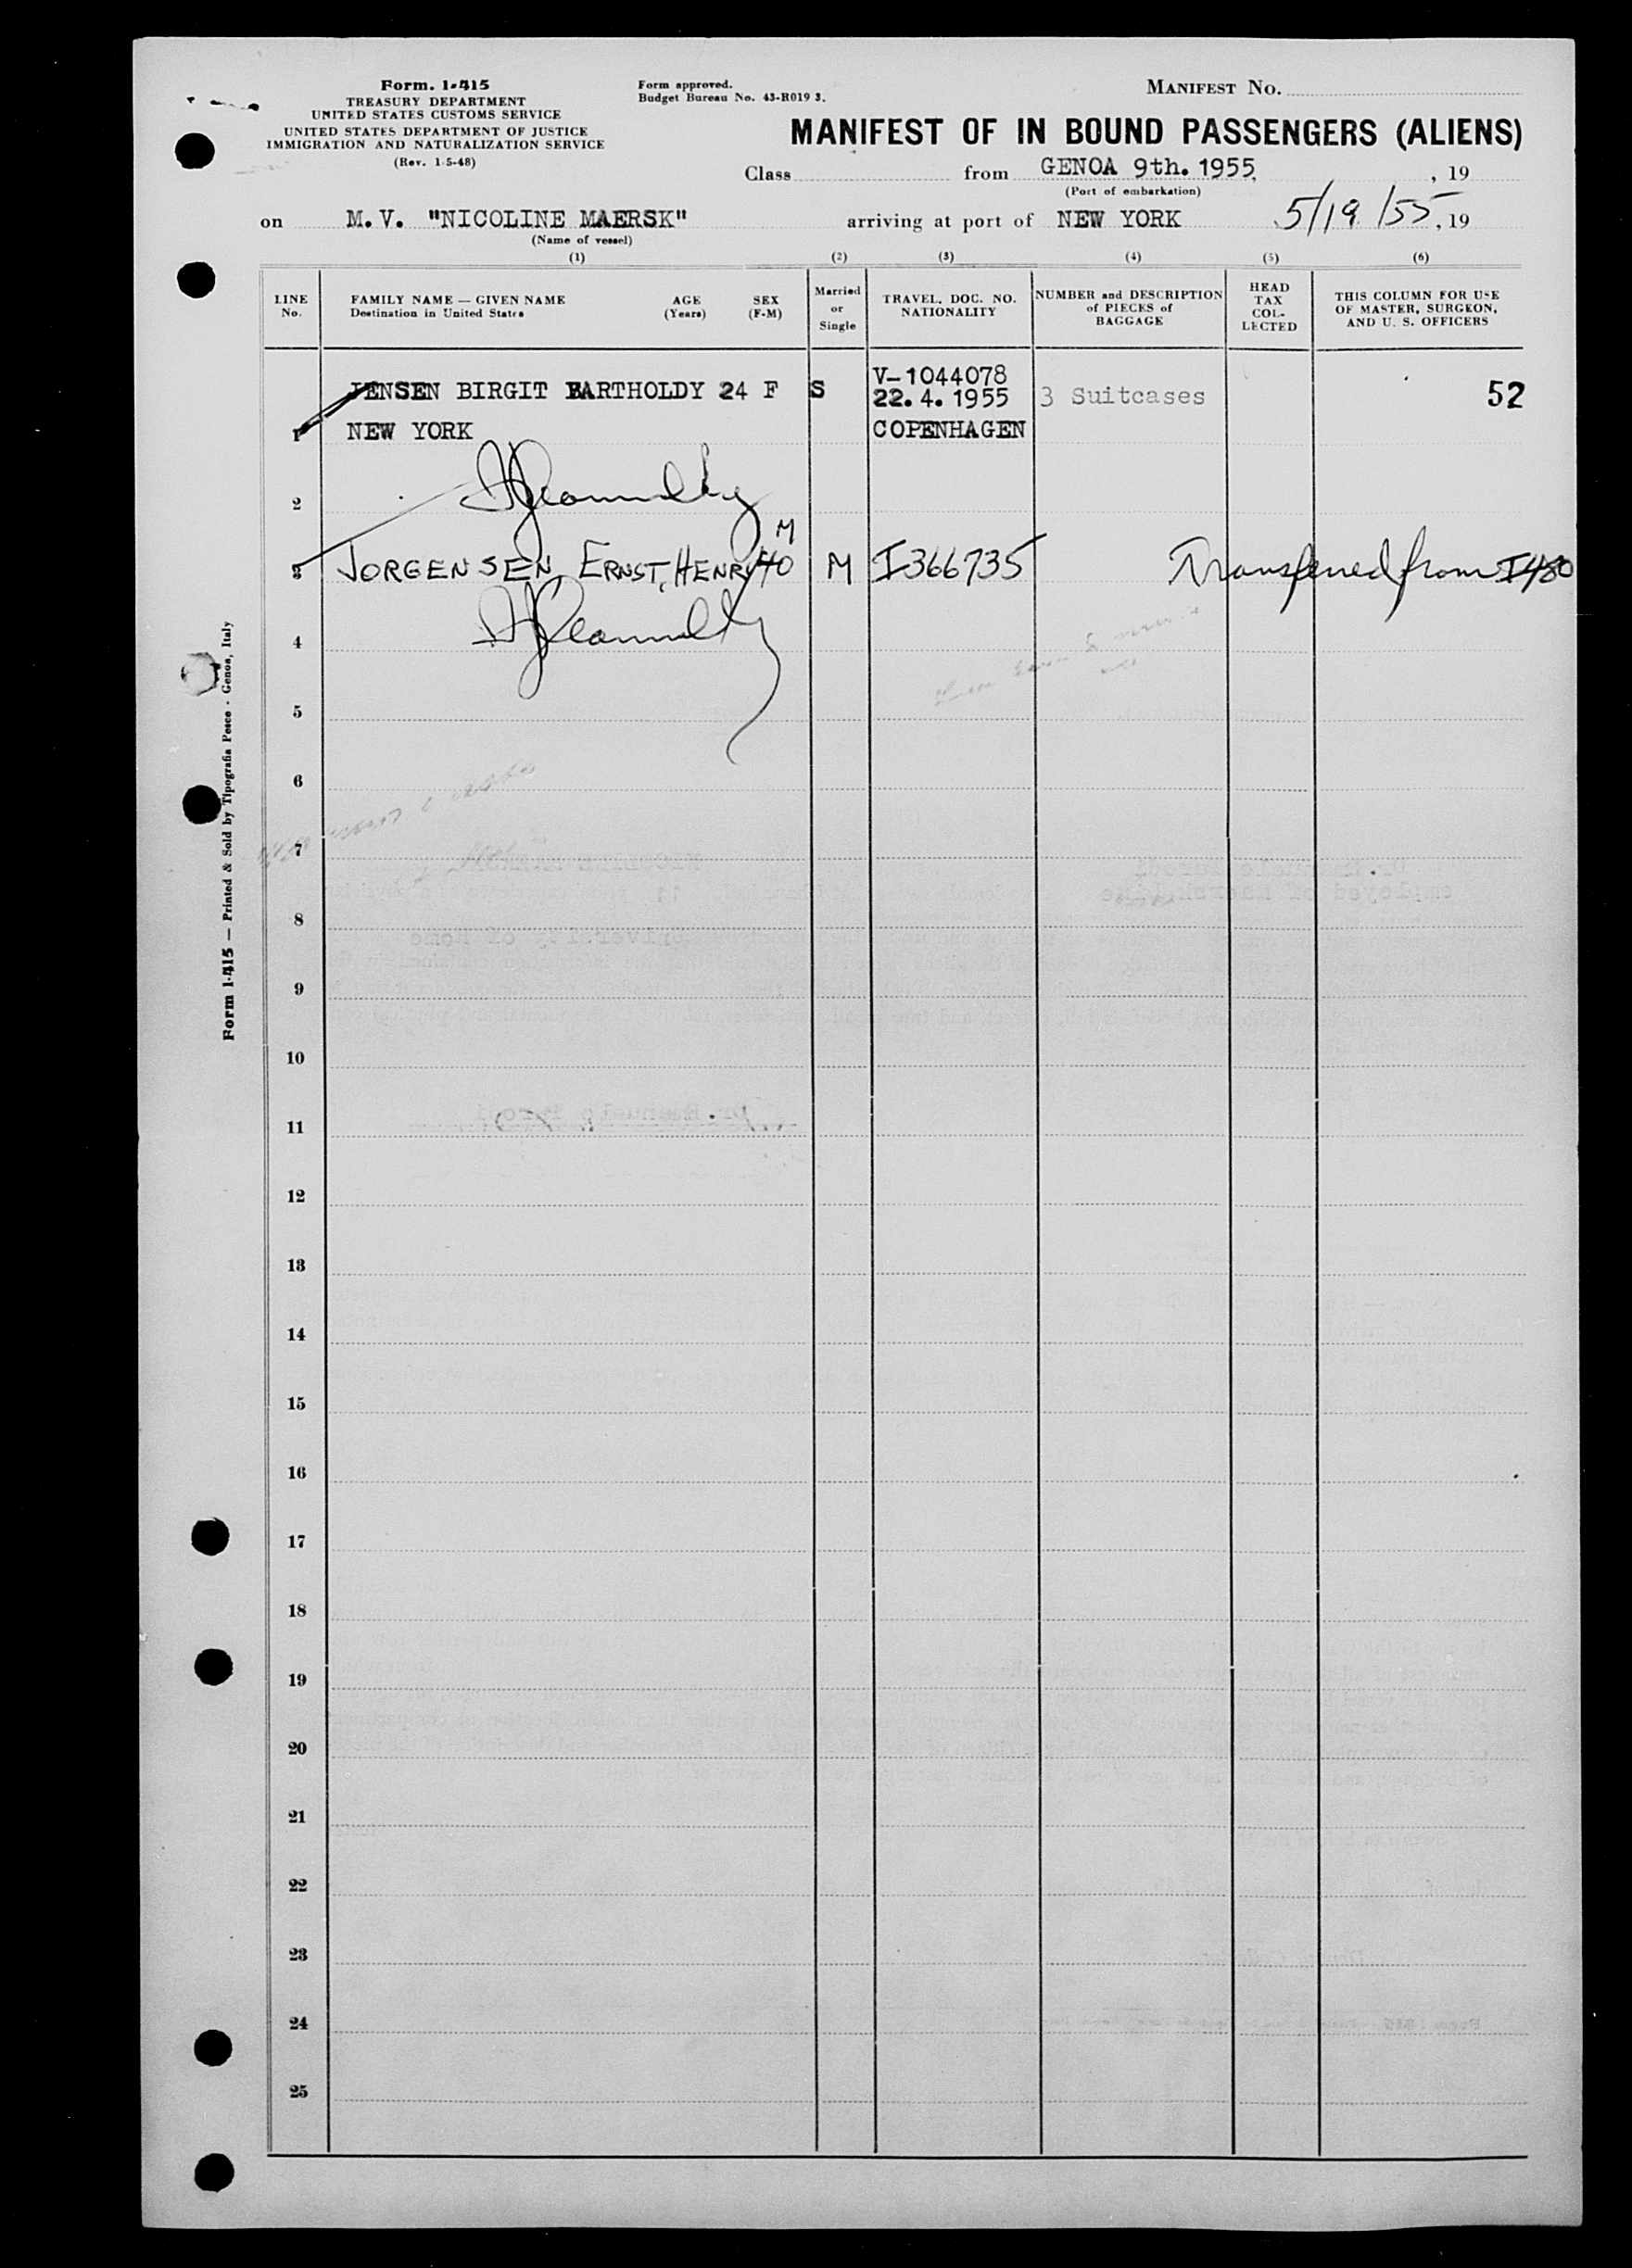 Form. I-415
TREASURY DEPARTMENT
UNITED STATES CUSTOMS SERVICE
UNITED STATES DEPARTMENT OF JUSTICE
IMMIGRATION AND NATURALIZATION SERVICE
(Rev. 1-5-48)
Form approved.
Budget Bureau No. 43-R019 3.
MANIFEST No.
MANIFEST OF IN BOUND PASSENGERS (ALIENS)
Class from GENOA 9th. 1955, , 19
(Port of embarkation)
on M.V. "NICOLINE MAERSK" arriving at port of NEW YORK 5/19/55, 19
(Name of vessel)
(1) (2) (3) (4) (5) (6)
LINE No.
FAMILY NAME — GIVEN NAME
Destination in United States
AGE (Years)
SEX (F-M)
Married or Single
TRAVEL. DOC. NO. NATIONALITY
NUMBER and DESCRIPTION of PIECES of BAGGAGE
HEAD TAX COLLECTED
THIS COLUMN FOR USE OF MASTER, SURGEON, AND U. S. OFFICERS
JENSEN BIRGIT BARTHOLDY 24 F S V-1044078
22.4.1955 3 Suitcases 52
1 NEW YORK COPENHAGEN
2
3 JORGENSEN, ERNST, HENRY 40 M M I366735 Transferred from I480
4
5
6
7
8
9
10
11
12
13
14
15
16
17
18
19
20
21
22
23
24
25
Form I-415 — Printed & Sold by Tipografia Pesce - Genoa, Italy